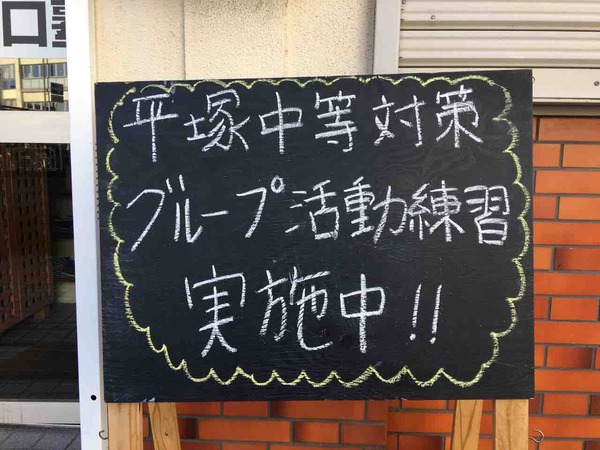 平塚中等対策
グループ活動練習
実施中!!